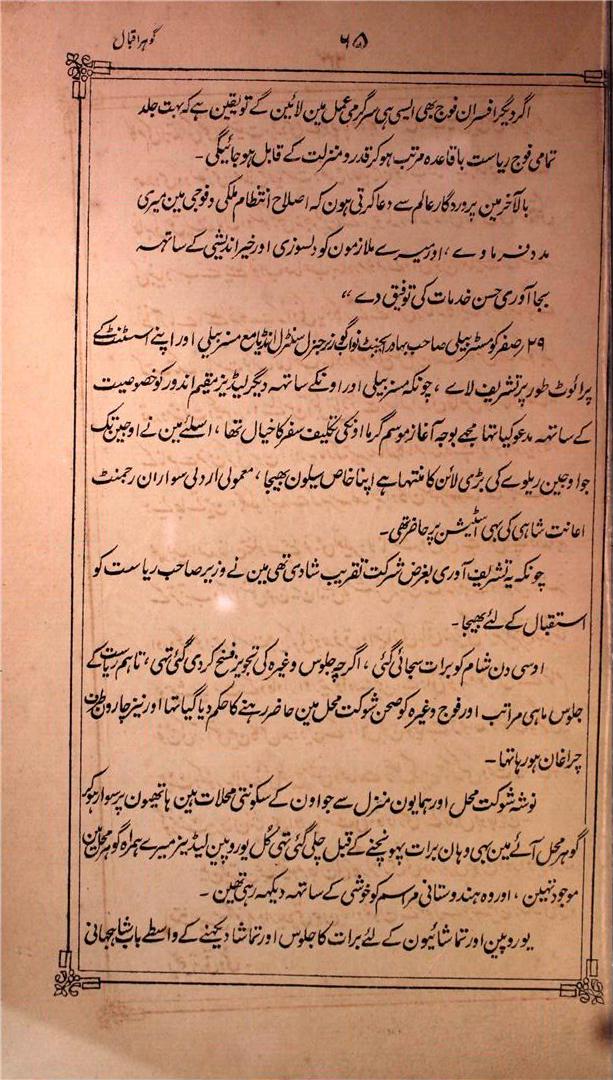 ۶۵ گوہر اقبال
اگر دیگر افسران فوج بھی ایسی ہی سرگرمی عمل مین لائین گے تو یقین ہے کہ بہت جلد
تمامی فوج ریاست باقاعدہ مرتب ہوکر قدر و منزلت کے قابل ہوجائیگی ۔
بالآخر مین پروردگار عالم سے دعا کرتی ہون کہ اصلاح انتظام ملکی و فوجی مین میری
مدد فرماوے ، اور میرے ملازمون کو دلسوزی اور خیر اندیشی کے ساتھہ
بجا آوری حسن خدمات کی توفیق دے “
۲۹ صفر کو مسٹر بیلی صاحب بہادر ایجنٹ نواب گورنر جنرل سنٹرل انڈیا مع مسز بیلی اور اپنے اسسٹنٹ کے
پرائوٹ طور پر تشریف لاے ، چونکہ مسز بیلی اور اونکے ساتھہ دیگر لیڈیز مقیم اندور کو خصوصیت
کے ساتھہ مدعو کیا تھا مجھے بوجہ آغاز موسم گرما اونکی تکلیف سفر کا خیال تھا ، اسلئے مین نے اوجین تک
جو اوجین ریلوے کی بڑی لائن کا منتہا ہے اپنا خاص سیلون بھیجا ، معمولی اردلی سواران رجمنٹ
اعانت شاہی کی بہی اسٹیشن پر حاضر تھی ۔
چونکہ یہ تشریف آوری بغرض شرکت تقریب شادی تھی مین نے وزیر صاحب ریاست کو
استقبال کے لئے بھیجا ۔
اوسی دن شام کو برات سجائی گئی ، اگرچہ جلوس وغیرہ کی تجویز فسخ کردی گئی تہی ، تاہم ریاست کے
جلوس ماہی مراتب اور فوج وغیرہ کو صحن شوکت محل مین حاضر رہنے کا حکم دیا گیا تہا اور نیز چارون طرف
چراغان ہو رہا تہا ۔
نوشہ شوکت محل اور ہمایون منزل سے جو اون کے سکونتی محلات ہین ہاتھیون پر سوار ہوکر
گوہر محل آئے مین بہی وہان برات پہونچنے کے قبل چلی گئی تہی کل یوروپین لیڈیز میرے ہمراہ گوہر محل مین
موجود تہین ، اور وہ ہندوستانی مراسم کو خوشی کے ساتھہ دیکھہ رہی تھین ۔
یوروپین اور تماشائیون کے لئے برات کا جلوس اور تماشا دیکہنے کے واسطے باب شاہجہانی